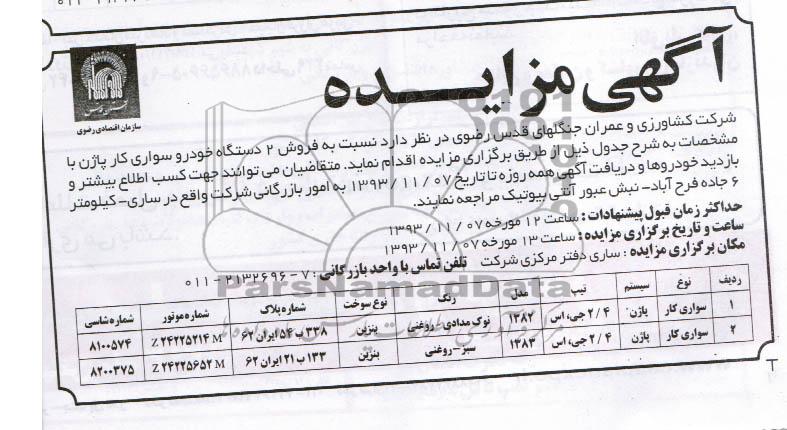 آگهی مزایده
سازمان اقتصادی رضوی
شرکت کشاورزی و عمران جنگلهای قدس رضوی در نظر دارد نسبت به فروش ۲ دستگاه خودرو سواری کار پاژن با
مشخصات به شرح جدول ذیل از طریق برگزاری مزایده اقدام نماید. متقاضیان می توانند جهت کسب اطلاع بیشتر و
بازدید خودروها و دریافت آگهی همه روزه تا تاریخ ۰۷ / ۱۱ / ۱۳۹۳ به امور بازرگانی شرکت واقع در ساری- کیلومتر
۶ جاده فرح آباد- نبش عبور آنتی بیوتیک مراجعه نمایند.
حداکثر زمان قبول پیشنهادات : ساعت ۱۲ مورخه ۰۷ / ۱۱ / ۱۳۹۳
ساعت و تاریخ برگزاری مزایده : ساعت ۱۳ مورخه ۰۷ / ۱۱ / ۱۳۹۳
مکان برگزاری مزایده : ساری دفتر مرکزی شرکت تلفن تماس با واحد بازرگانی : ۷ - ۲۱۳۲۶۹۶ - ۰۱۱
ParsNamadData
ردیف نوع سیستم تیپ مدل رنگ نوع سوخت شماره پلاک شماره موتور شماره شاسی
۱ سواری کار پاژن ۲/۴ جی، اس ۱۳۸۲ نوک مدادی - روغنی بنزین ۳۳۸ ب ۵۴ ایران ۶۲ Z ۲۴۲۲۵۲۱۴ M ۸۱۰۰۵۷۴
۲ سواری کار پاژن ۲/۴ جی، اس ۱۳۸۳ سبز - روغنی بنزین ۱۳۳ ب ۲۱ ایران ۶۲ Z ۲۴۲۲۵۶۵۲ M ۸۲۰۰۳۷۵